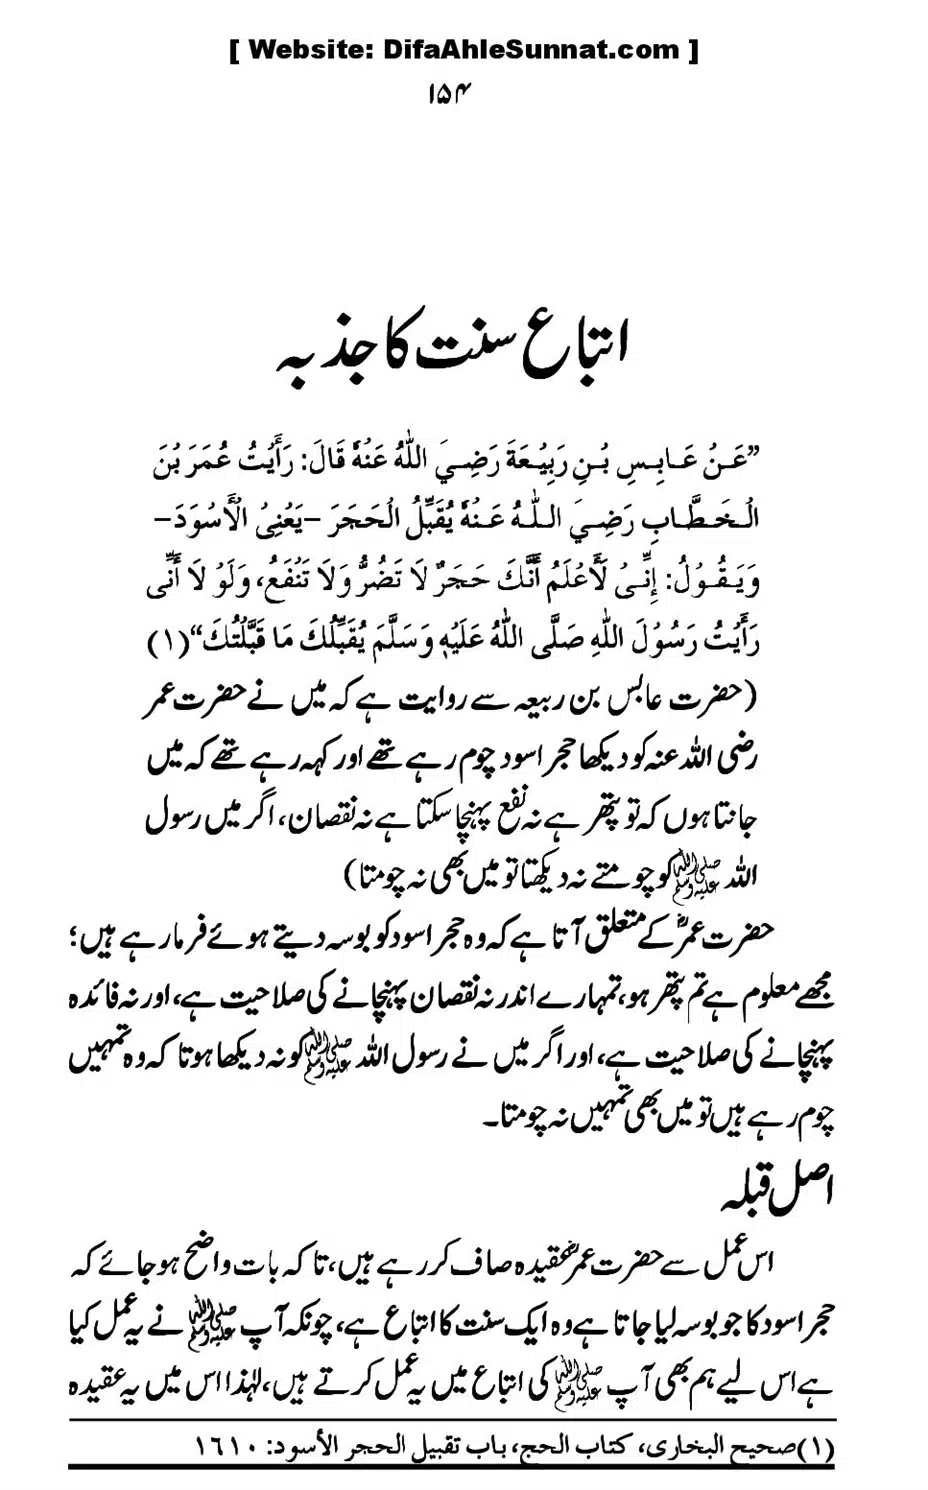 [ Website: DifaAhleSunnat.com ]
۱۵۴
اتباع سنت کا جذبہ
”عَنْ عَابِسِ بْنِ رَبِيْعَةَ رَضِيَ اللّٰهُ عَنْهُ قَالَ: رَأَيْتُ عُمَرَ بْنَ
الْخَطَّابِ رَضِيَ اللّٰهُ عَنْهُ يُقَبِّلُ الْحَجَرَ –يَعْنِيْ الْأَسْوَدَ–
وَيَقُوْلُ: إِنِّيْ لَأَعْلَمُ أَنَّكَ حَجَرٌ لَا تَضُرُّ وَلَا تَنْفَعُ، وَلَوْ لَا أَنِّى
رَأَيْتُ رَسُوْلَ اللّٰهِ صَلَّى اللّٰهُ عَلَيْهِ وَسَلَّمَ يُقَبِّلُكَ مَا قَبَّلْتُكَ“(۱)
(حضرت عابس بن ربیعہ سے روایت ہے کہ میں نے حضرت عمر
رضی اللہ عنہ کو دیکھا حجر اسود چوم رہے تھے اور کہہ رہے تھے کہ میں
جانتا ہوں کہ تو پتھر ہے نہ نفع پہنچا سکتا ہے نہ نقصان، اگر میں رسول
اللہ ﷺ کو چومتے نہ دیکھتا تو میں بھی نہ چومتا)
حضرت عمرؓ کے متعلق آتا ہے کہ وہ حجر اسود کو بوسہ دیتے ہوئے فرما رہے ہیں؛
مجھے معلوم ہے تم پتھر ہو، تمہارے اندر نہ نقصان پہنچانے کی صلاحیت ہے، اور نہ فائدہ
پہنچانے کی صلاحیت ہے، اور اگر میں نے رسول اللہ ﷺ کو نہ دیکھا ہوتا کہ وہ تمہیں
چوم رہے ہیں تو میں بھی تمہیں نہ چومتا۔
اصل قبلہ
اس عمل سے حضرت عمرؓ عقیدہ صاف کر رہے ہیں، تا کہ بات واضح ہو جائے کہ
حجر اسود کا جو بوسہ لیا جاتا ہے وہ ایک سنت کا اتباع ہے، چونکہ آپ ﷺ نے یہ عمل کیا
ہے اس لیے ہم بھی آپ ﷺ کی اتباع میں یہ عمل کرتے ہیں، لہٰذا اس میں یہ عقیدہ
(۱) صحیح البخاری، کتاب الحج، باب تقبیل الحجر الأسود: ۱٦۱۰